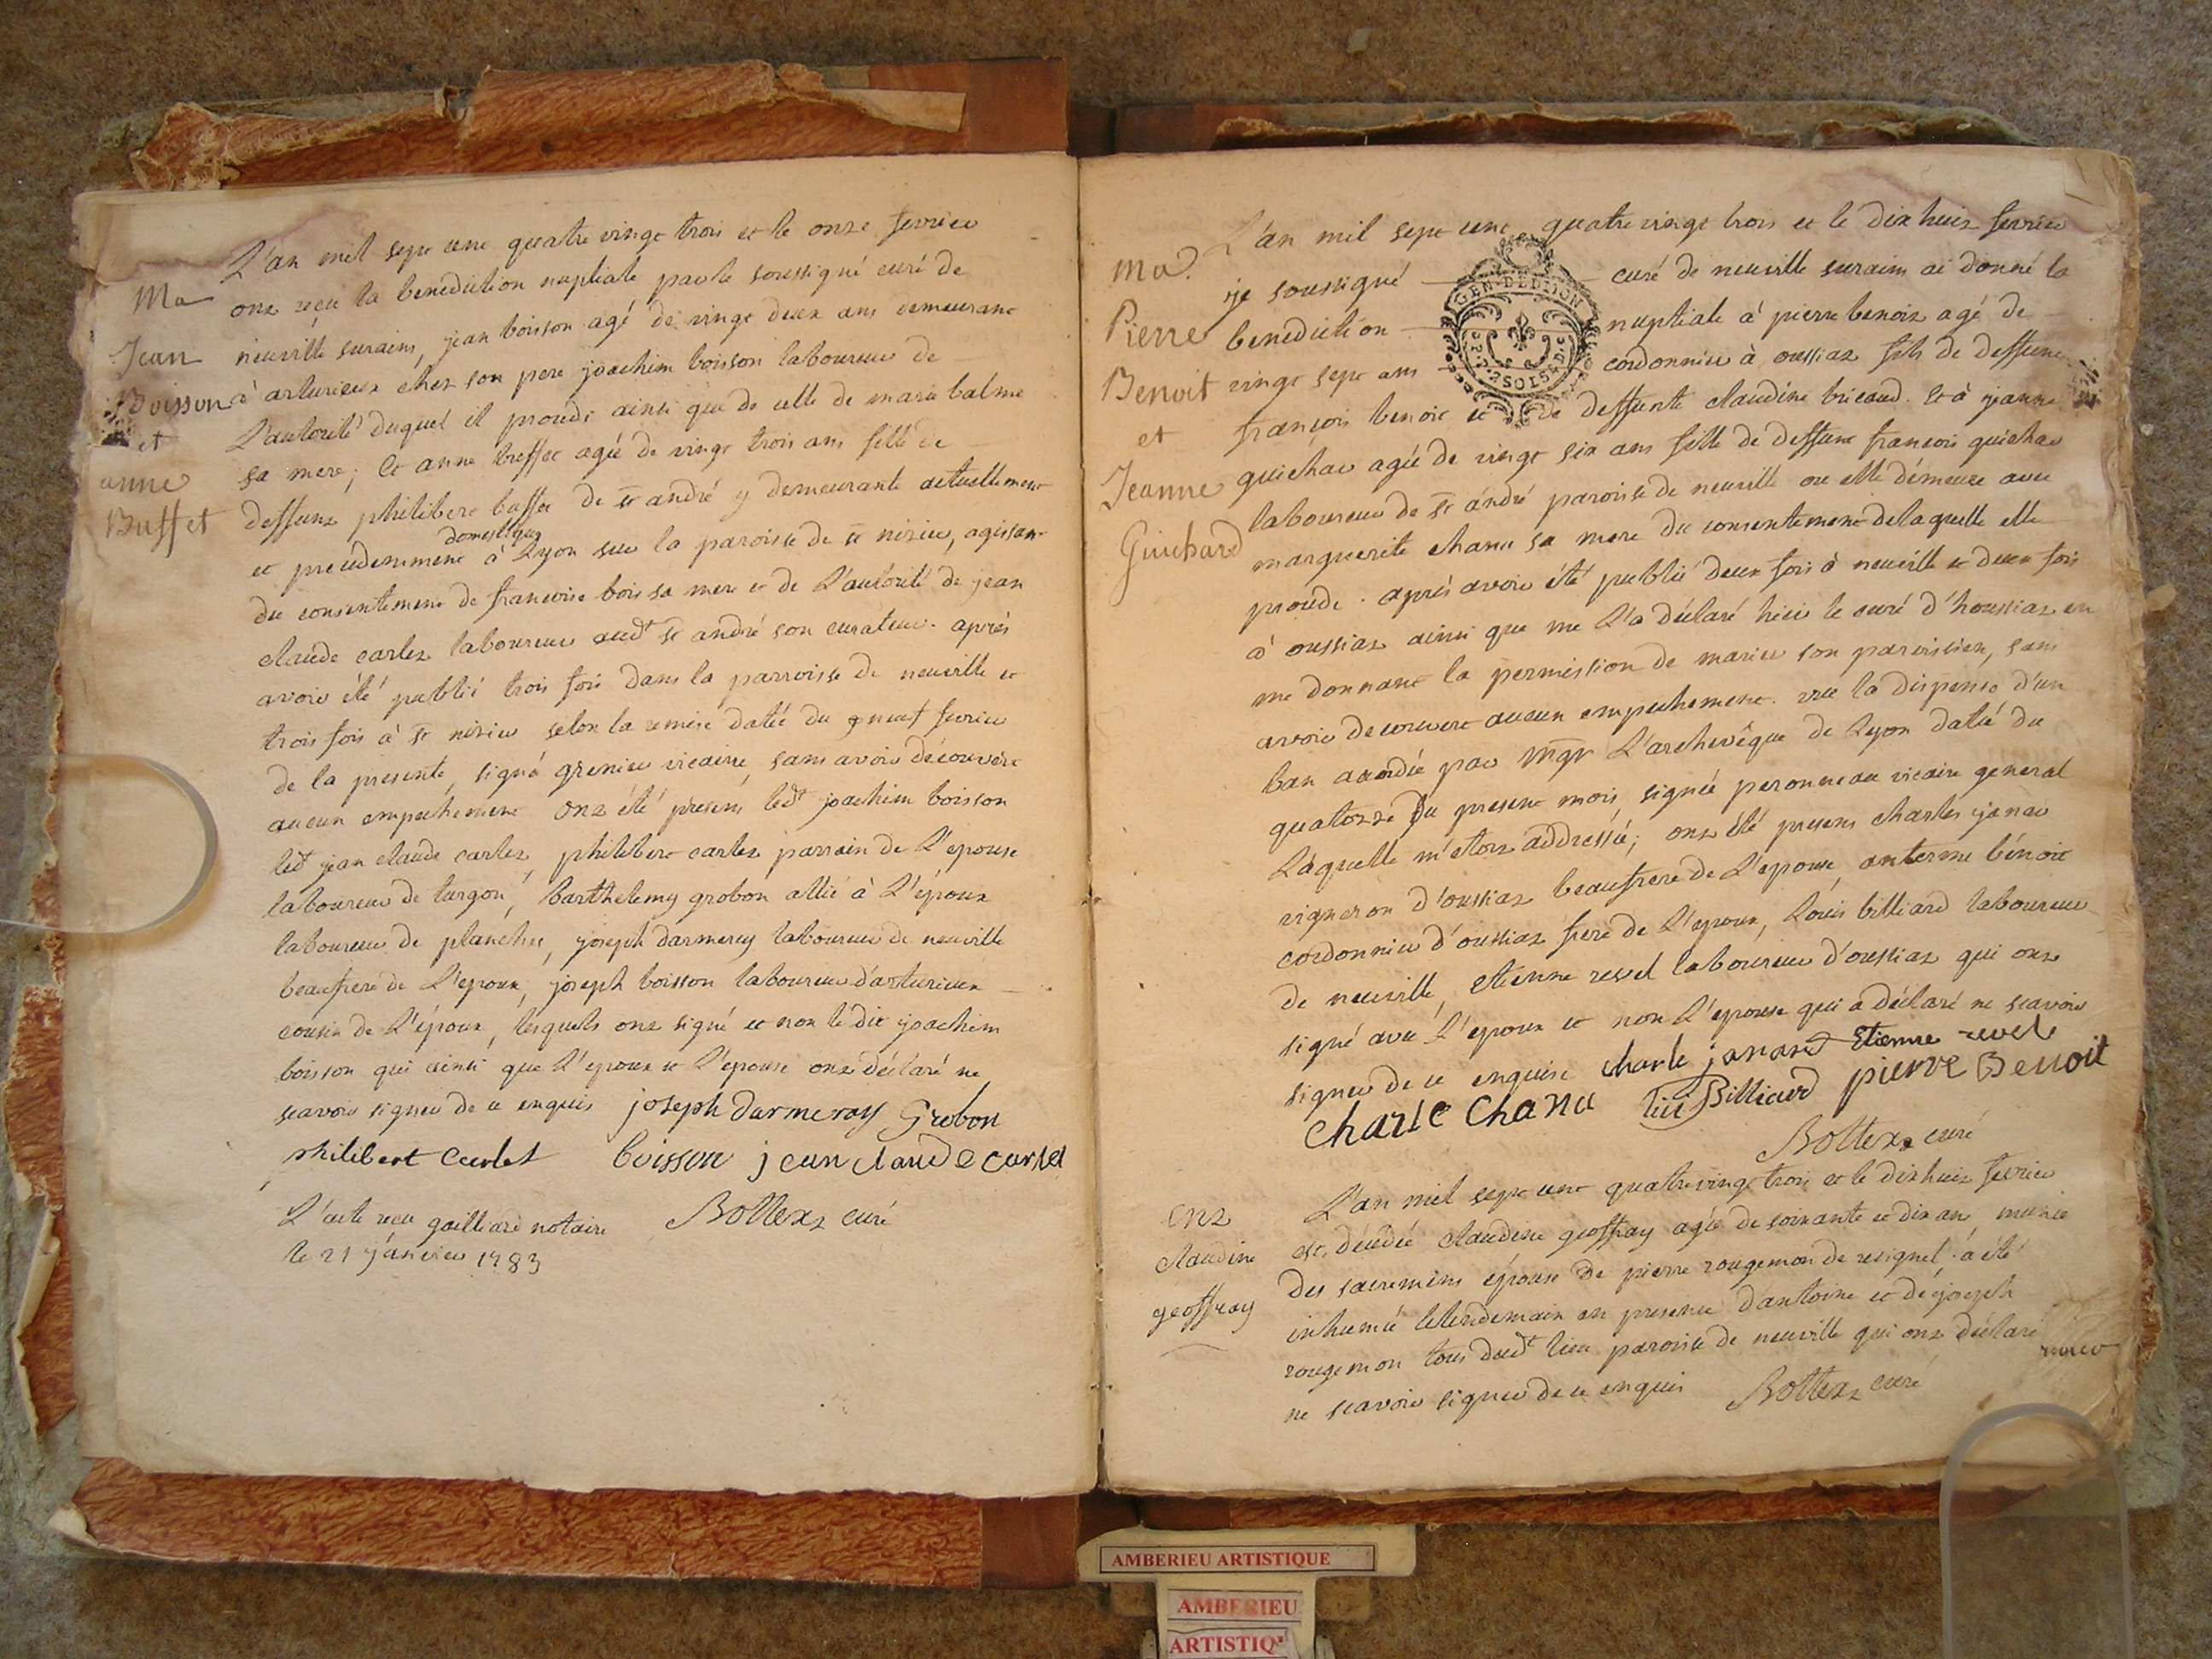 L'an mil sept cent quatre vingt trois et le onze fevrier
Ma
ont reçu la benediction nuptiale par le soussigné curé de
Jean
neuville surains, jean boisson agé de vingt deux ans demeurant
Boisson
à arturieux chez son pere joachim boisson laboureur de
et
L'autorité duquel il procede ainsi que de celle de marie balme
anne
sa mere; Et anne buffet agée de vingt trois ans fille de
Buffet
deffunt philibert buffet de st andré y demeurante actuellement
domestique
et precedemment à Lyon sur la paroisse de st nizier, agissant
du consentement de francoise bois sa mere et de L'autorité de jean
claude carlez laboureur audt st andré son curateur. après
avoir été publié trois fois dans la parroisse de neuville et
trois fois à st nizier selon la remise datée du neuf fevrier
de la presente, signé grenier vicaire, sans avoir découvert
aucun empechement ont été presens ledt joachim boisson
ledt jean claude carlez, philibert carlez parrain de L'epouse
laboureur de turgon, barthelemy grobon allié à L'époux
laboureur de planche, joseph darmeroy laboureur de neuville
beaufrere de L'epoux, joseph boisson laboureur d'arturieux
cousin de L'époux, lesquels ont signé et non le dit joachim
boisson qui ainsi que L'epoux et L'epouse ont déclaré ne
scavoir signer de ce enquis joseph darmeroy Grobon
philibert Carlet boisson jean claude carlet
L'acte reçu gailliard notaire Bottex curé
le 21 janvier 1783
L'an mil sept cent quatre vingt trois et le dix huit fevrier
Ma.
je soussigné curé de neuville surains ai donné la
GEN. DE DIJON
Pierre
benediction nuptiale à pierre benoit agé de
Benoit
vingt sept ans cordonnier à oussiaz fils de deffunt
et
françois benoit et de deffunte claudine bricaud. Et à jeanne
Jeanne
guichar agée de vingt six ans fille de deffunt francois guichar
Guichard
laboureur de st andré paroisse de neuville ou elle démeure avec
marguerite chanu sa mere du consentement delaquelle elle
procede. après avoir été publié deux fois à neuville et deux fois
à oussiaz ainsi que me L'a déclaré hier le curé d'houssiaz en
me donnant la permission de marier son paroissien, sans
avoir decouvert aucun empechement. vue la dispense d'un
ban accordée par Mgr L'archevêque de Lyon datée du
quatorze du present mois, signée peronneau vicaire general
Laquelle m'etois addressée; ont été presens charles janar
vigneron d'oussiaz beaufrere de L'epouse, anterme bénoit
cordonnier d'oussiaz frere de L'epoux, Louis billiard laboureur
de neuville, etienne revel laboureur d'oussiaz qui ont
signé avec L'epoux et non L'epouse qui a déclaré ne scavoir
signer de ce enquise charle janard Etienne revel
charle Chanu Billiard pierre Benoit
Bottex curé
L'an mil sept cent quatrevingt trois et le dixhuit fevrier
Ent
est décédée claudine geoffray agée de soixante et dix ans, munie
claudine
des sacremens épouse de pierre rougemon de resignel. a été
geoffray
inhumée lelendemain en presence d'antoine et de joseph
rougemon tous dudt lieu paroisse de neuville qui ont déclaré
ne scavoir signer de ce enquis Bottex curé
AMBERIEU ARTISTIQUE
AMBERIEU
ARTISTIQ